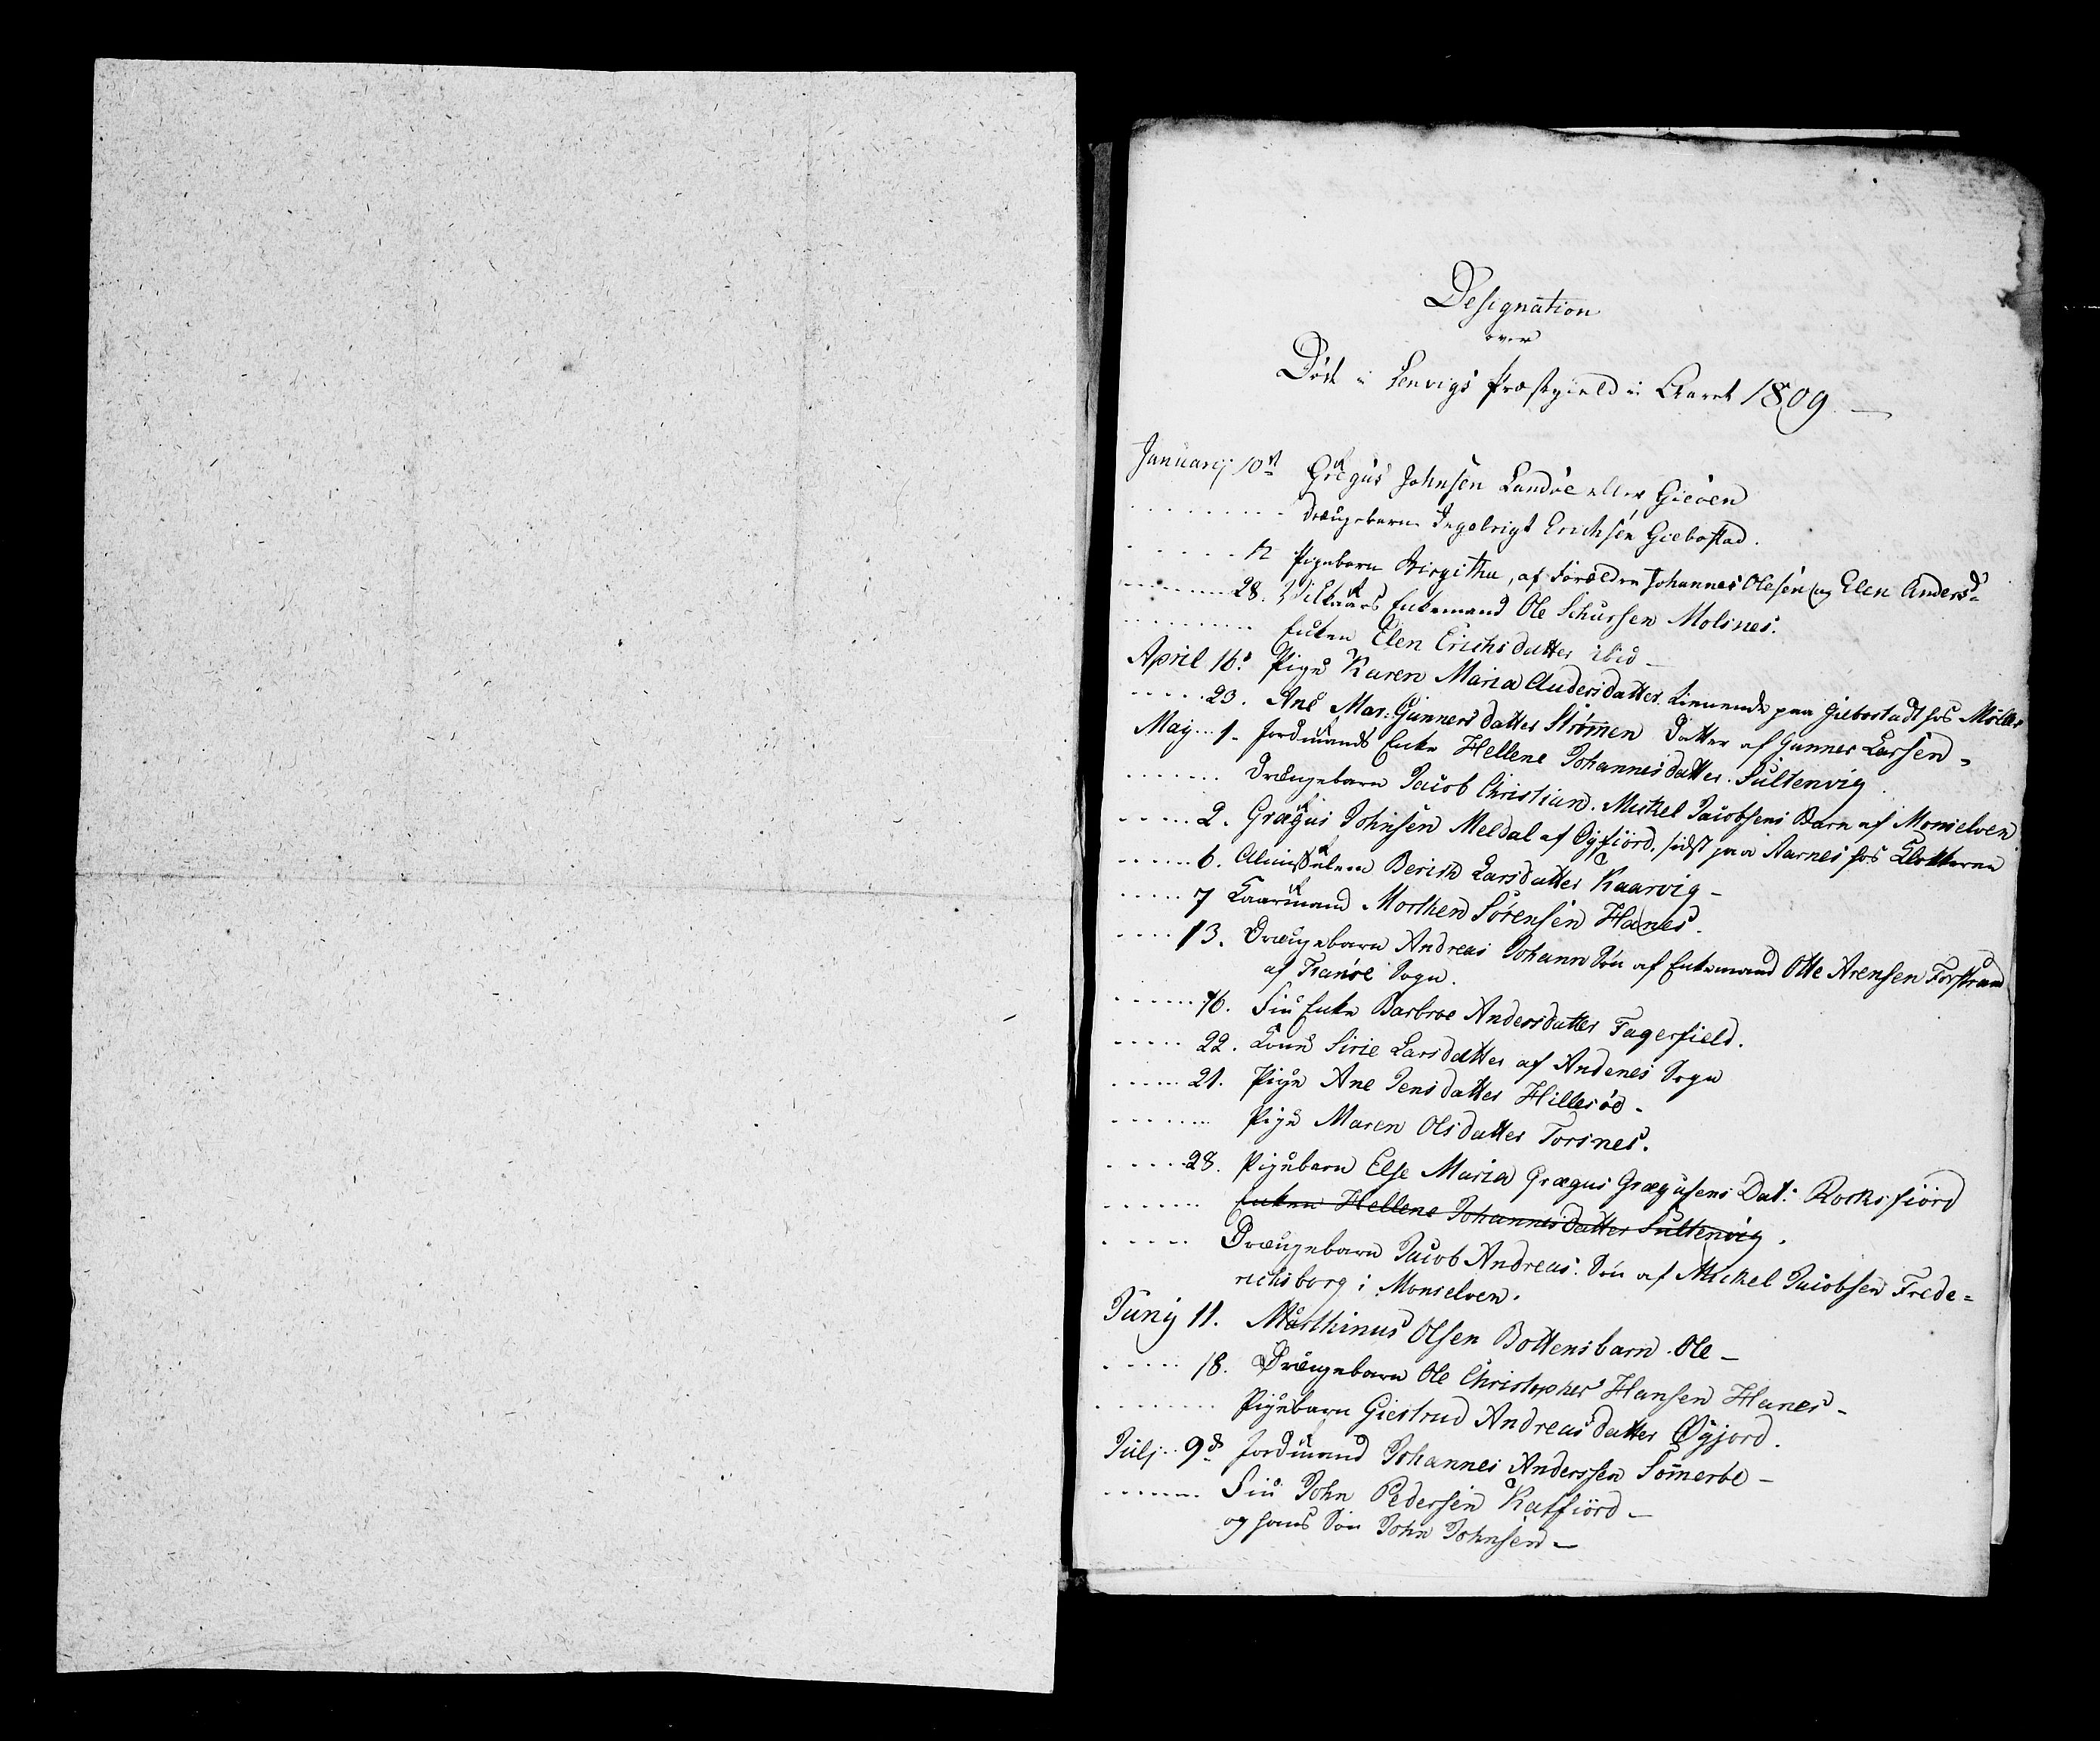 Designation
over
Døde i Lenvigs Præstegield i Aaret 1809. —
Januarij 10de Grægus Johnsen Landøe eller Gieøen
Drengebarn Ingebrigt Erichsen Giebostad.
12 Pigebarn Birgitha, af Forældre Johannes Olesen og Elen Andersd:
28. Vilkaars Enkemand Ole Schursen Molsnes.
Enken Elen Erichsdatter ibid —
April 16. Pige Karen Maria Andersdatter tienende paa Giebostadt hos Møller
23. Ane Mar: Gunnersdatter Strømmen Datter af Gunner Larsen -
May 1. Jordmands Enke Hellene Johannesdatter Sultenvig.
Drengebarn Jacob Christian. Mickel Jacobsens Barn af Monselven
2. Grægus Johnsen Meldal af Øyfiord, sidst paa Aarnes hos Klokkeren
6. Almisselem Berith Larsdatter Kaarvig -
7 Kaarmand Morthen Sørensen Hanes.
13. Drengebarn Andreas Johann Søn af Enkemand Otte Arensen Forstrand
af Tranøe Sogn.
16. Fin Enke Barbroe Andersdatter Fagerfield.
22. Kone Sirie Larsdatter af Andenes Sogn
21. Pige Ane Jensdatter Hillesøe -
Pige Maren Olsdatter Torsnes.
28. Pigebarn Else Maria Grægus Grægusens Dat: Rocksfiord
Enken Hellene Johannesdatter Sultenvig.
Drengebarn Jacob Andreas. Søn af Mickel Jacobsen Frede=
richsborg i Monselven.
Junij 11. Marthinus Olsen Bottens barn Ole -
18. Drengebarn Ole Christopher Hansen Hanes -
Pigebarn Giertrud Andreasdatter Øyjord.
Julj 9de Jordmand Johannes Anderssen Sømerbe -
Fin John Pedersen Katfiord -
og hans Søn John Johnsen -